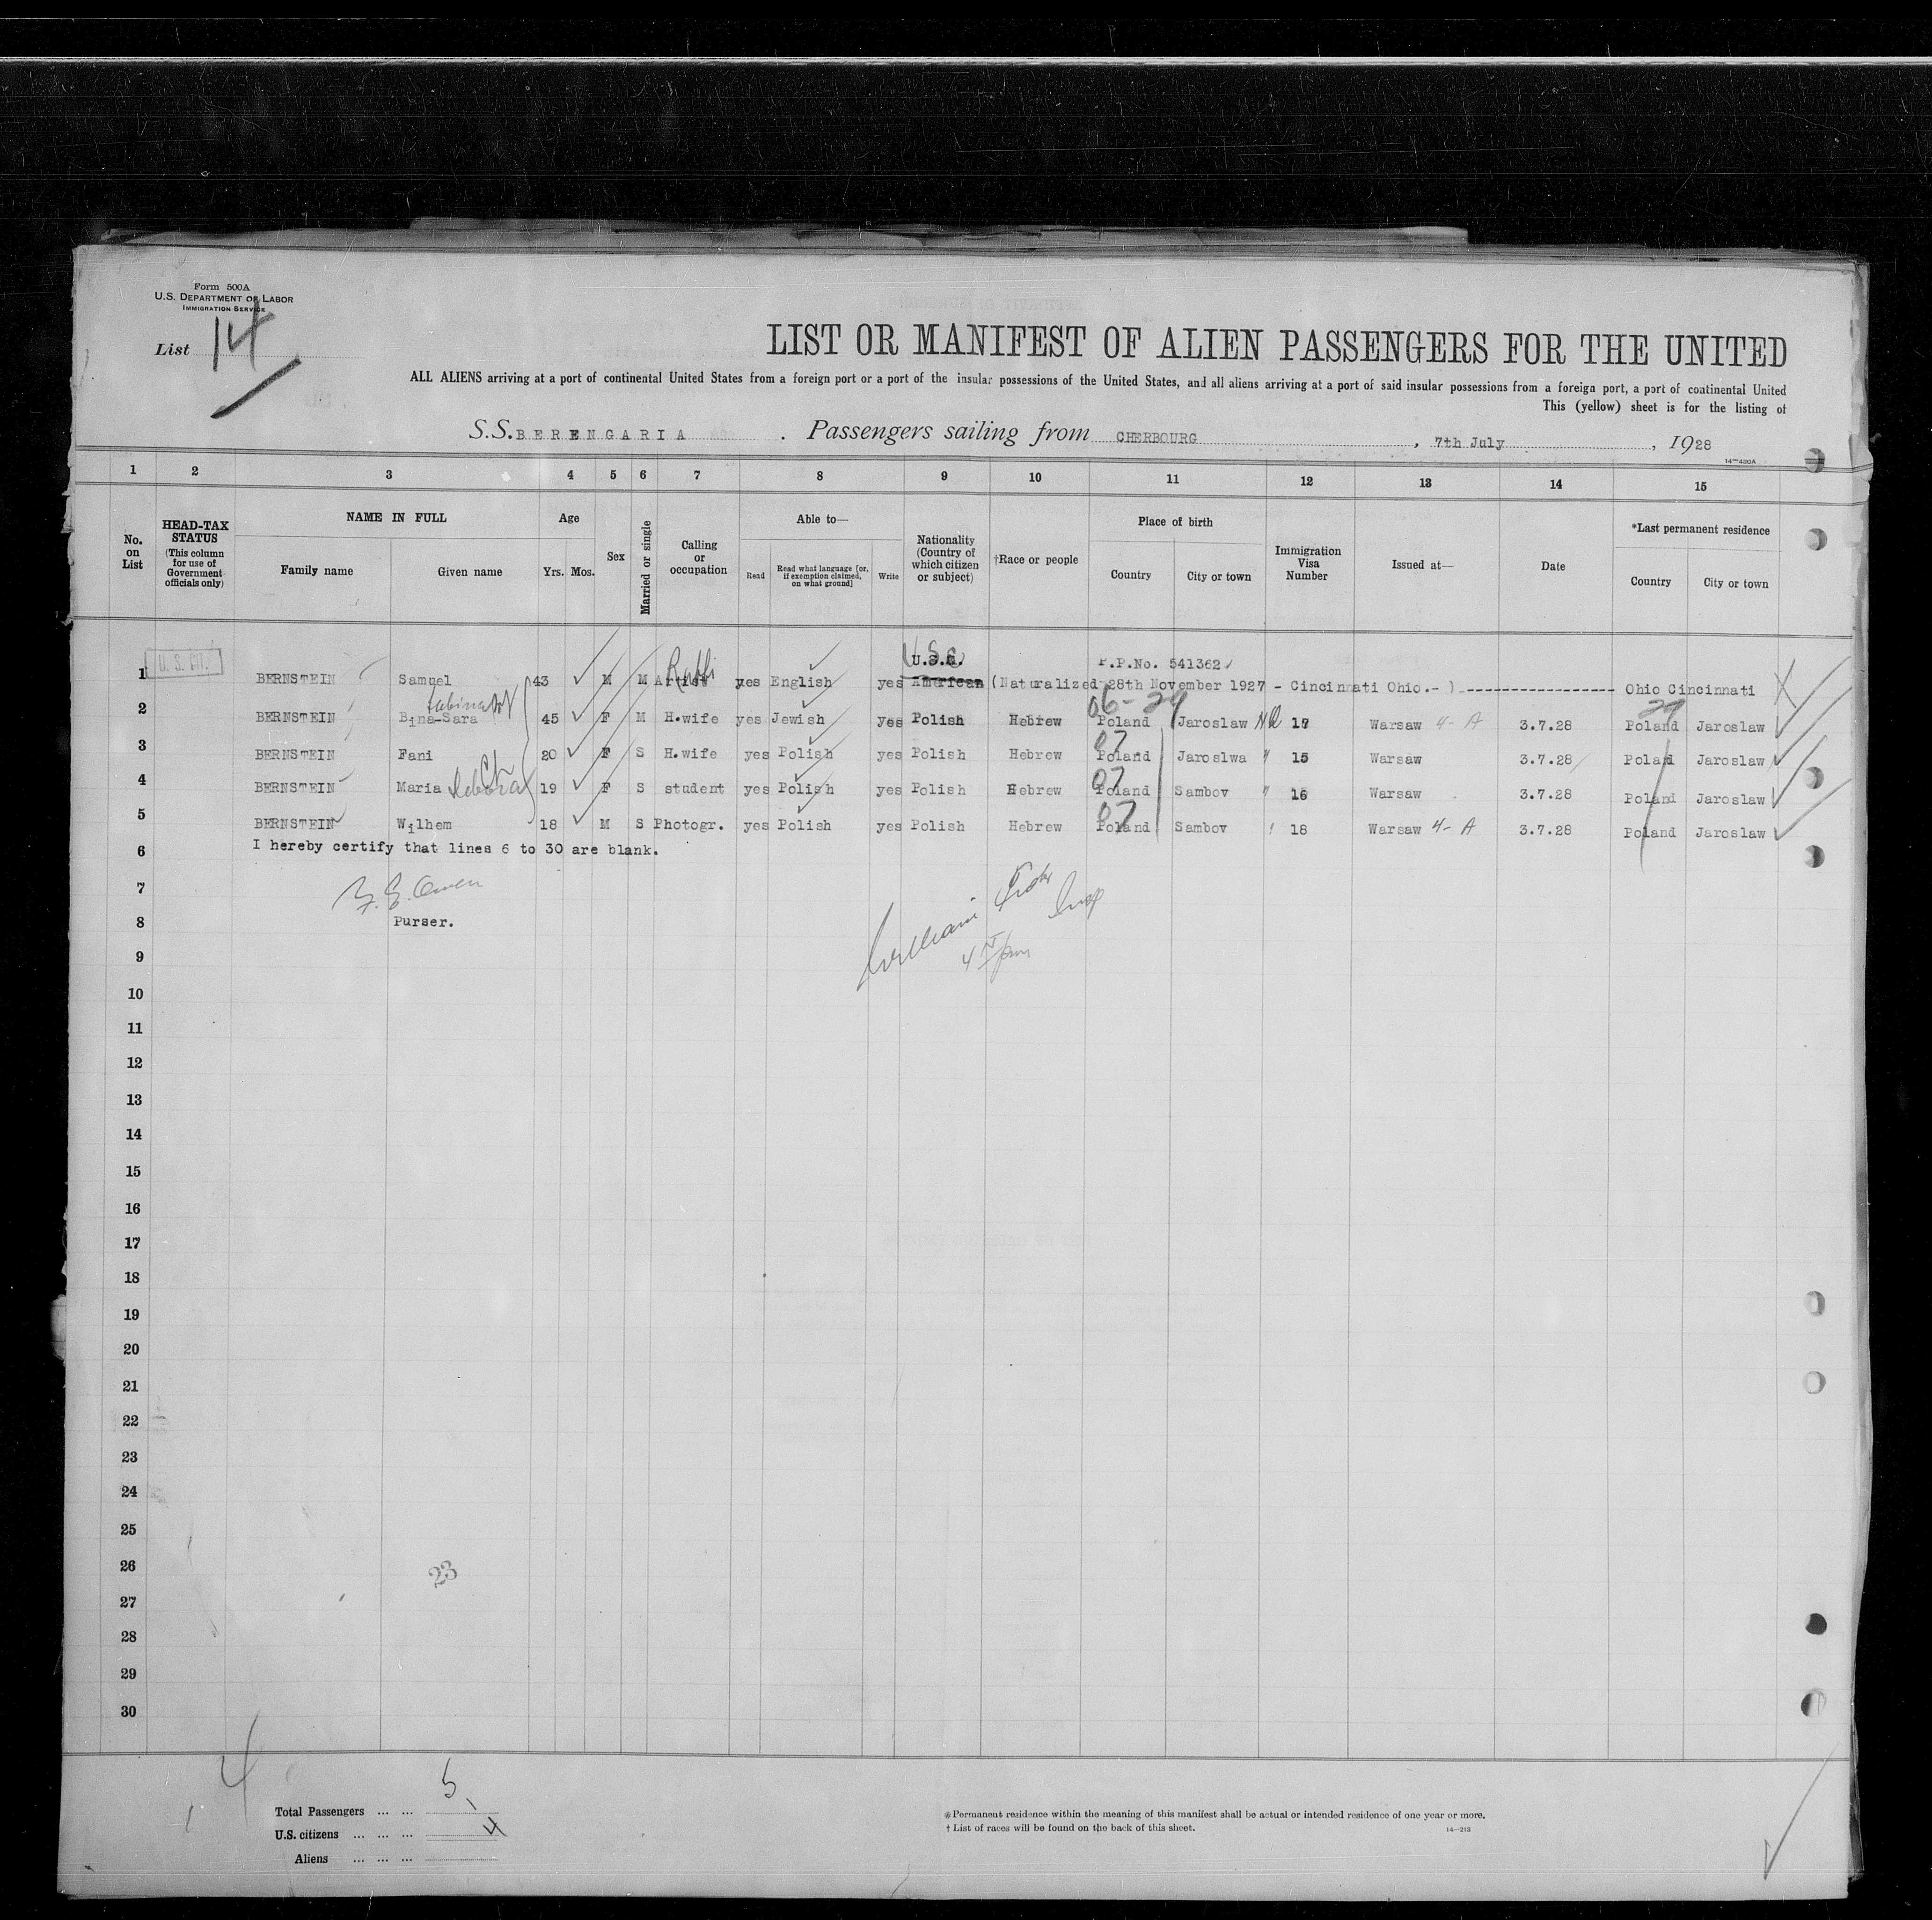 Form 500A
U.S. DEPARTMENT OF LABOR
IMMIGRATION SERVICE
List 14
LIST OR MANIFEST OF ALIEN PASSENGERS FOR THE UNITED
ALL ALIENS arriving at a port of continental United States from a foreign port or a port of the insular possessions of the United States, and all aliens arriving at a port of said insular possessions from a foreign port, a port of continental United
This (yellow) sheet is for the listing of
S.S. BERENGARIA . Passengers sailing from CHERBOURG , 7th July , 1928
14—480A
1 2 3 4 5 6 7 8 9 10 11 12 13 14 15
No. on List
HEAD-TAX STATUS
(This column for use of Government officials only)
NAME IN FULL
Family name Given name
Age
Yrs. Mos.
Sex
Married or single
Calling or occupation
Able to—
Read
Read what language [or, if exemption claimed, on what ground]
Write
Nationality (Country of which citizen or subject)
†Race or people
Place of birth
Country City or town
Immigration Visa Number
Issued at—
Date
*Last permanent residence
Country City or town
U.S.C.
U.S.C. P.P.No. 541362
1 U. S. CIT. BERNSTEIN Samuel 43 M M Artist yes English yes American (Naturalized 28th November 1927 - Cincinnati Ohio.- ) Ohio Cincinnati
Sabina 06-29 29
2 BERNSTEIN Bina-Sara 45 F M H.wife yes Jewish yes Polish Hebrew Poland Jaroslaw 17 Warsaw 4-A 3.7.28 Poland Jaroslaw
07
3 BERNSTEIN Fani 20 F S H.wife yes Polish yes Polish Hebrew Poland Jaroslwa " 15 Warsaw 3.7.28 Poland Jaroslaw
07
4 BERNSTEIN Maria Debora 19 F S student yes Polish yes Polish Hebrew Poland Sambov " 16 Warsaw 3.7.28 Poland Jaroslaw
07
5 BERNSTEIN Wilhem 18 M S Photogr. yes Polish yes Polish Hebrew Poland Sambov 18 Warsaw 4-A 3.7.28 Poland Jaroslaw
6 I hereby certify that lines 6 to 30 are blank.
7 Owen
8 Purser.
William Insp
9
10
11
12
13
14
15
16
17
18
19
20
21
22
23
24
25
26
23
27
28
29
30
4
5
Total Passengers ... ...
U.S. citizens ... ... ...
Aliens ... ... ...
*Permanent residence within the meaning of this manifest shall be actual or intended residence of one year or more.
† List of races will be found on the back of this sheet.
14—213